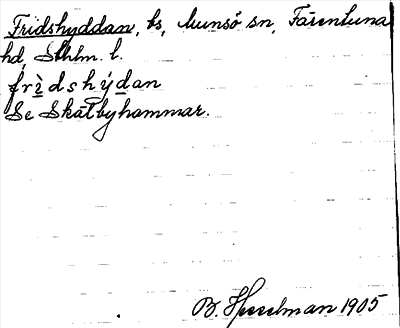 Fridshyddan, ks, Munsö sn, Färentuna
hd, Sthlm. l.
frìdshýdan
Se Skätbyhammar.
B. Hesselman 1905